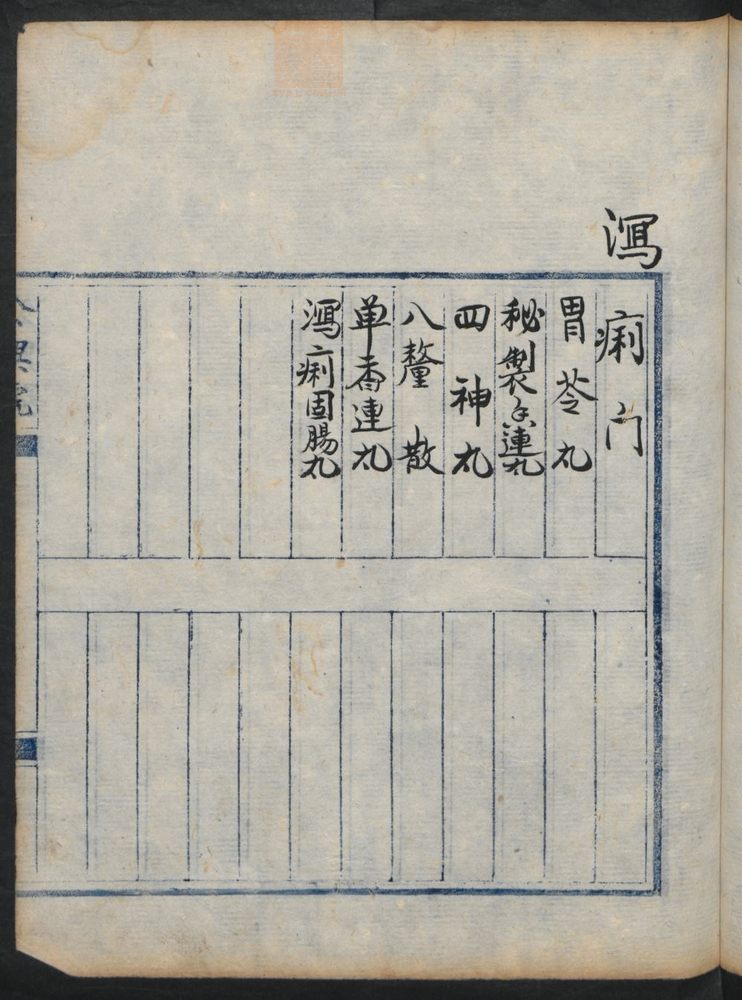 瀉痢门
胃苓丸
秘製香連丸
四神丸
八釐散
单香連丸
瀉痢固腸丸